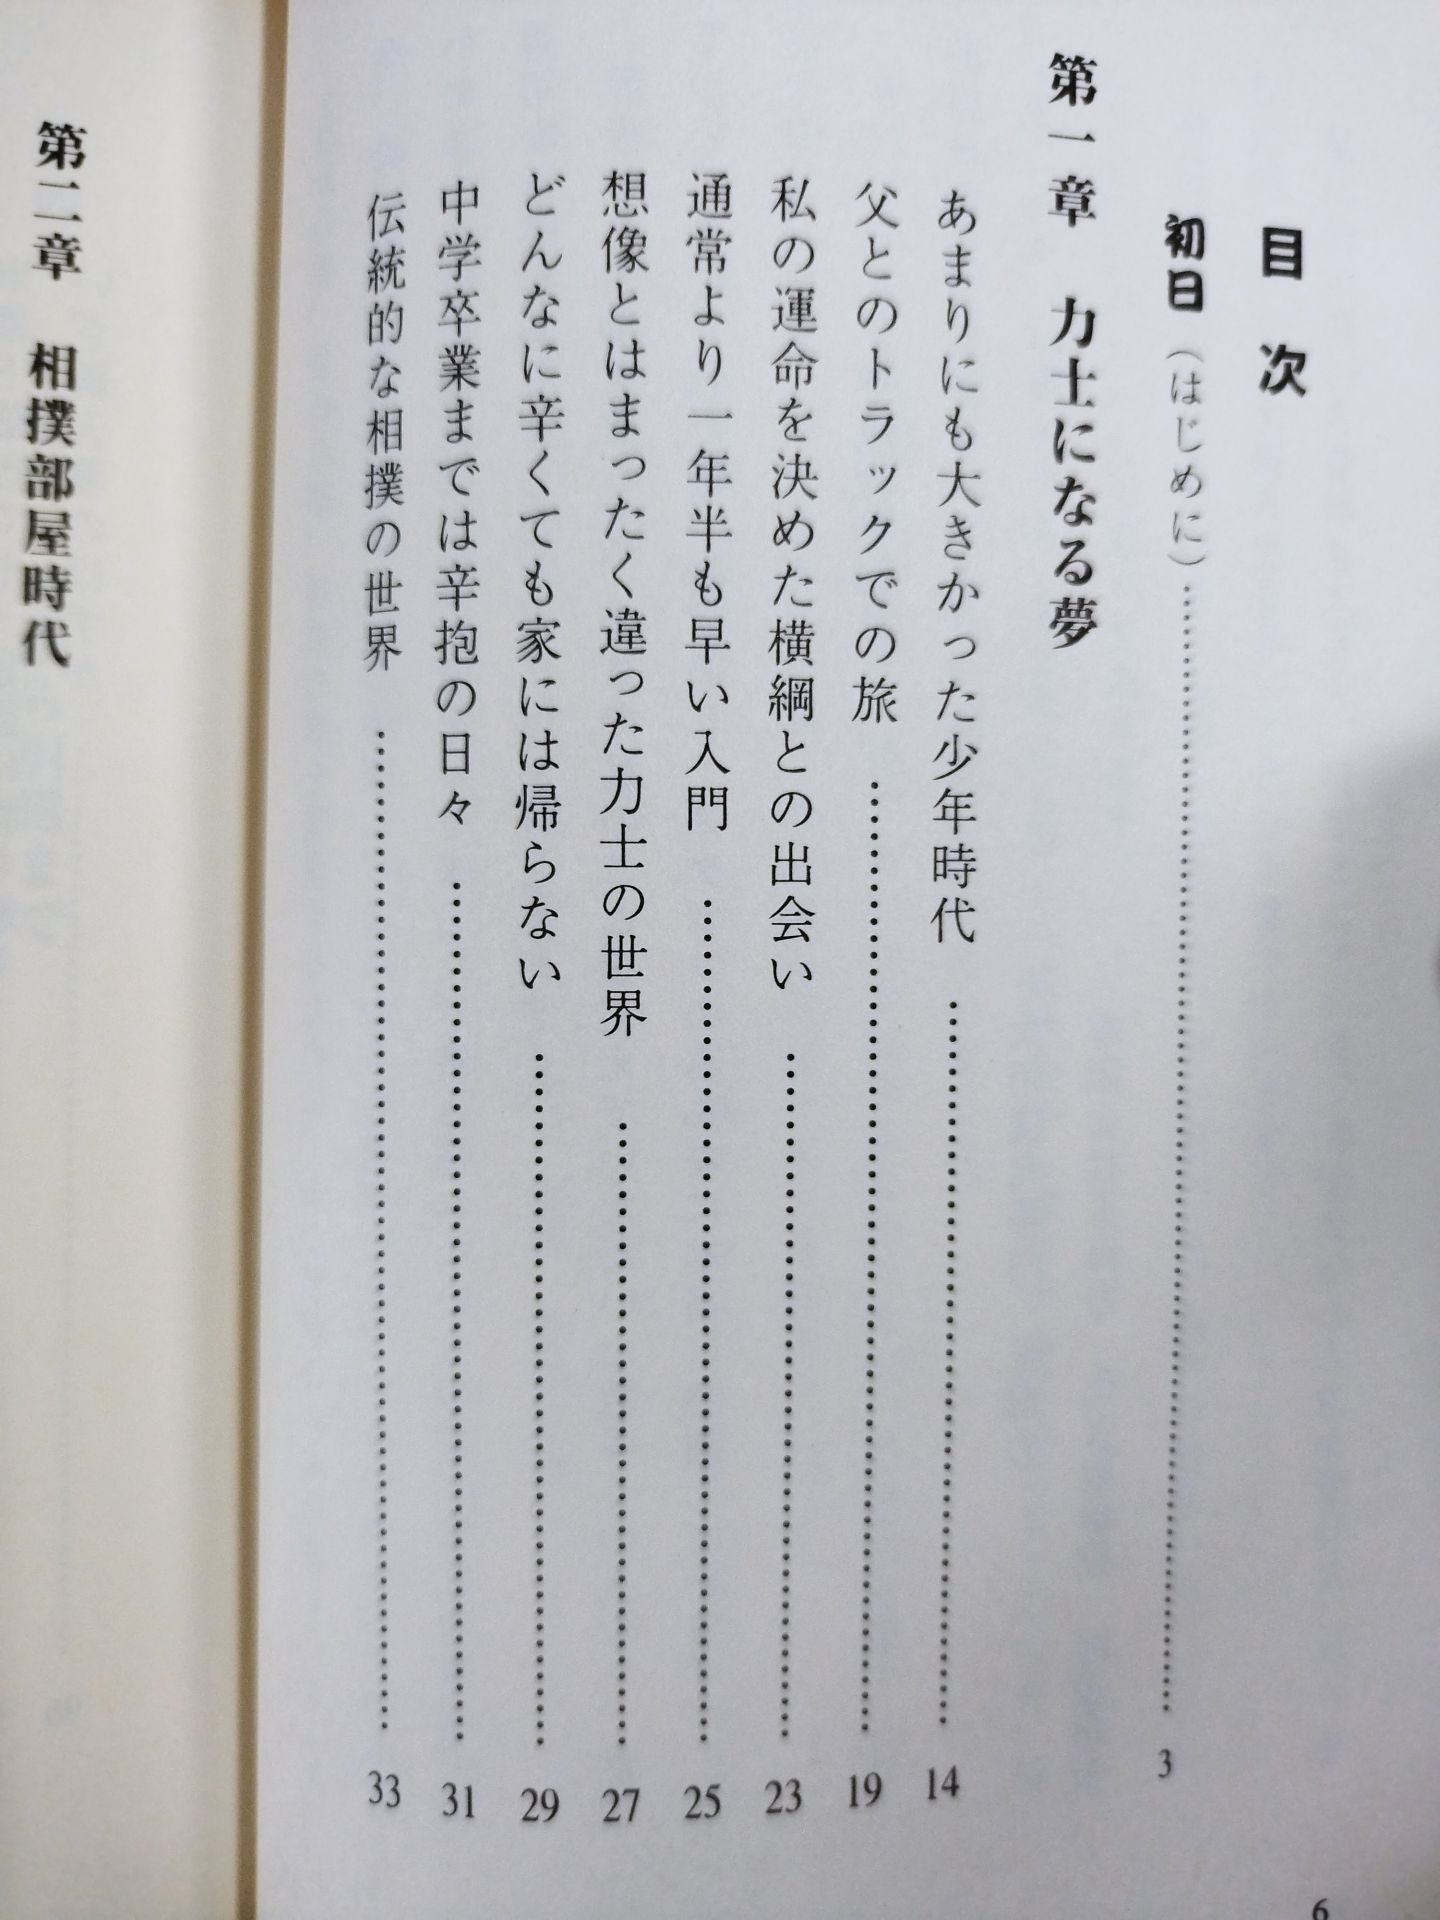 目次
初日（はじめに）……………… 3
第一章　力士になる夢
あまりにも大きかった少年時代……………… 14
父とのトラックでの旅……………… 19
私の運命を決めた横綱との出会い……………… 23
通常より一年半も早い入門……………… 25
想像とはまったく違った力士の世界……………… 27
どんなに辛くても家には帰らない……………… 29
中学卒業までは辛抱の日々……………… 31
伝統的な相撲の世界……………… 33
6
第二章　相撲部屋時代